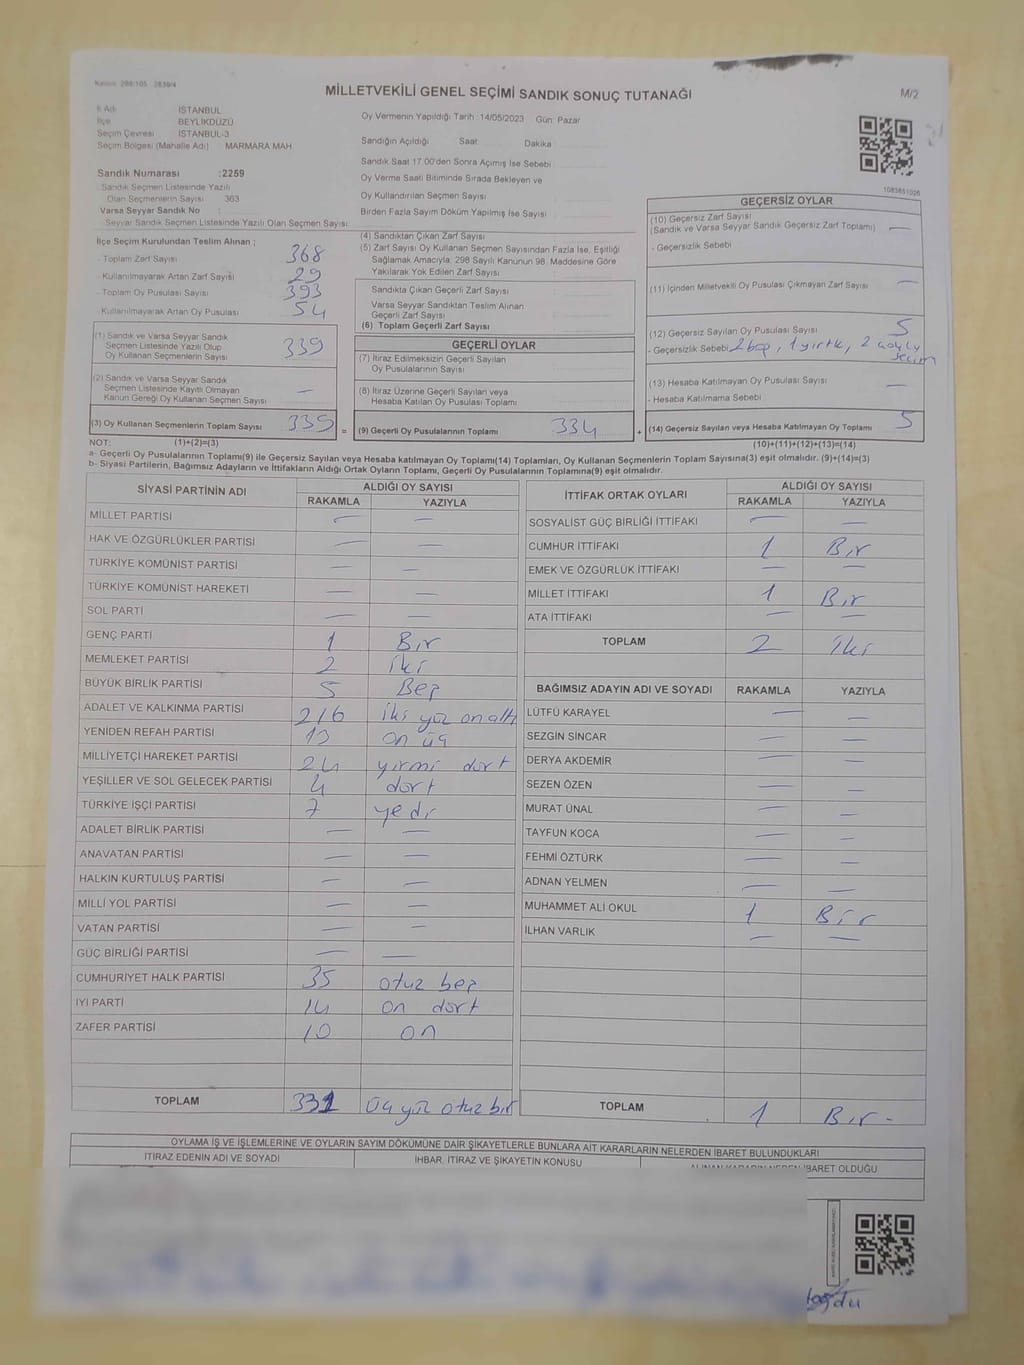 Kanun: 298/105 - 2839/4
MİLLETVEKİLİ GENEL SEÇİMİ SANDIK SONUÇ TUTANAĞI
M/2
İl Adı İSTANBUL
İlçe BEYLİKDÜZÜ
Seçim Çevresi İSTANBUL-3
Seçim Bölgesi (Mahalle Adı) : MARMARA MAH
Sandık Numarası :2259
- Sandık Seçmen Listesinde Yazılı
Olan Seçmenlerin Sayısı 363
Varsa Seyyar Sandık No :
- Seyyar Sandık Seçmen Listesinde Yazılı Olan Seçmen Sayısı
Oy Vermenin Yapıldığı Tarih : 14/05/2023 Gün: Pazar
Sandığın Açıldığı Saat Dakika
Sandık Saat 17.00'den Sonra Açılmış İse Sebebi
Oy Verme Saati Bitiminde Sırada Bekleyen ve
Oy Kullandırılan Seçmen Sayısı
Birden Fazla Sayım Döküm Yapılmış İse Sayısı
1083651026
İlçe Seçim Kurulundan Teslim Alınan ;
- Toplam Zarf Sayısı 368
- Kullanılmayarak Artan Zarf Sayısı 29
- Toplam Oy Pusulası Sayısı 393
- Kullanılmayarak Artan Oy Pusulası 54
(1) Sandık ve Varsa Seyyar Sandık
Seçmen Listesinde Yazılı Olup
Oy Kullanan Seçmenlerin Sayısı 339
(2) Sandık ve Varsa Seyyar Sandık
Seçmen Listesinde Kayıtlı Olmayan
Kanun Gereği Oy Kullanan Seçmen Sayısı —
(3) Oy Kullanan Seçmenlerin Toplam Sayısı 339
(4) Sandıktan Çıkan Zarf Sayısı
(5) Zarf Sayısı Oy Kullanan Seçmen Sayısından Fazla İse, Eşitliği
Sağlamak Amacıyla, 298 Sayılı Kanunun 98. Maddesine Göre
Yakılarak Yok Edilen Zarf Sayısı
Sandıkta Çıkan Geçerli Zarf Sayısı
Varsa Seyyar Sandıktan Teslim Alınan
Geçerli Zarf Sayısı
(6) Toplam Geçerli Zarf Sayısı
GEÇERLİ OYLAR
(7) İtiraz Edilmeksizin Geçerli Sayılan
Oy Pusulalarının Sayısı
(8) İtiraz Üzerine Geçerli Sayılan veya
Hesaba Katılan Oy Pusulası Toplamı
= (9) Geçerli Oy Pusulalarının Toplamı 334 +
GEÇERSİZ OYLAR
(10) Geçersiz Zarf Sayısı
(Sandık ve Varsa Seyyar Sandık Geçersiz Zarf Toplamı) —
- Geçersizlik Sebebi
(11) İçinden Milletvekili Oy Pusulası Çıkmayan Zarf Sayısı —
(12) Geçersiz Sayılan Oy Pusulası Sayısı 5
- Geçersizlik Sebebi 2 boş, 1 yırtık, 2
seçim
(13) Hesaba Katılmayan Oy Pusulası Sayısı —
- Hesaba Katılmama Sebebi
(14) Geçersiz Sayılan veya Hesaba Katılmayan Oy Toplamı 5
NOT: (1)+(2)=(3)
(10)+(11)+(12)+(13)=(14)
a- Geçerli Oy Pusulalarının Toplamı(9) ile Geçersiz Sayılan veya Hesaba katılmayan Oy Toplamı(14) Toplamları, Oy Kullanan Seçmenlerin Toplam Sayısına(3) eşit olmalıdır. (9)+(14)=(3)
b- Siyasi Partilerin, Bağımsız Adayların ve İttifakların Aldığı Ortak Oyların Toplamı, Geçerli Oy Pusulalarının Toplamına(9) eşit olmalıdır.
SİYASİ PARTİNİN ADI ALDIĞI OY SAYISI
RAKAMLA YAZIYLA
MİLLET PARTİSİ — —
HAK VE ÖZGÜRLÜKLER PARTİSİ — —
TÜRKİYE KOMÜNİST PARTİSİ — —
TÜRKİYE KOMÜNİST HAREKETİ — —
SOL PARTİ — —
GENÇ PARTİ 1 Bir
MEMLEKET PARTİSİ 2 iki
BÜYÜK BİRLİK PARTİSİ 5 Beş
ADALET VE KALKINMA PARTİSİ 216 iki yüz on altı
YENİDEN REFAH PARTİSİ 13 on üç
MİLLİYETÇİ HAREKET PARTİSİ 24 yirmi dört
YEŞİLLER VE SOL GELECEK PARTİSİ 4 dört
TÜRKİYE İŞÇİ PARTİSİ 7 yedi
ADALET BİRLİK PARTİSİ — —
ANAVATAN PARTİSİ — —
HALKIN KURTULUŞ PARTİSİ — —
MİLLİ YOL PARTİSİ — —
VATAN PARTİSİ — —
GÜÇ BİRLİĞİ PARTİSİ — —
CUMHURİYET HALK PARTİSİ 35 otuz beş
İYİ PARTİ 14 on dört
ZAFER PARTİSİ 10 on
TOPLAM 331 üç yüz otuz bir
İTTİFAK ORTAK OYLARI ALDIĞI OY SAYISI
RAKAMLA YAZIYLA
SOSYALİST GÜÇ BİRLİĞİ İTTİFAKI — —
CUMHUR İTTİFAKI 1 Bir
EMEK VE ÖZGÜRLÜK İTTİFAKI — —
MİLLET İTTİFAKI 1 Bir
ATA İTTİFAKI — —
TOPLAM 2 iki
BAĞIMSIZ ADAYIN ADI VE SOYADI RAKAMLA YAZIYLA
LÜTFÜ KARAYEL — —
SEZGİN SİNCAR — —
DERYA AKDEMİR — —
SEZEN ÖZEN — —
MURAT ÜNAL — —
TAYFUN KOCA — —
FEHMİ ÖZTÜRK — —
ADNAN YELMEN — —
MUHAMMET ALİ OKUL 1 Bir
İLHAN VARLIK — —
TOPLAM 1 Bir -
OYLAMA İŞ VE İŞLEMLERİNE VE OYLARIN SAYIM DÖKÜMÜNE DAİR ŞİKAYETLERLE BUNLARA AİT KARARLARIN NELERDEN İBARET BULUNDUKLARI
İTİRAZ EDENİN ADI VE SOYADI İHBAR, İTİRAZ VE ŞİKAYETİN KONUSU ALINAN KARARIN NEDEN İBARET OLDUĞU